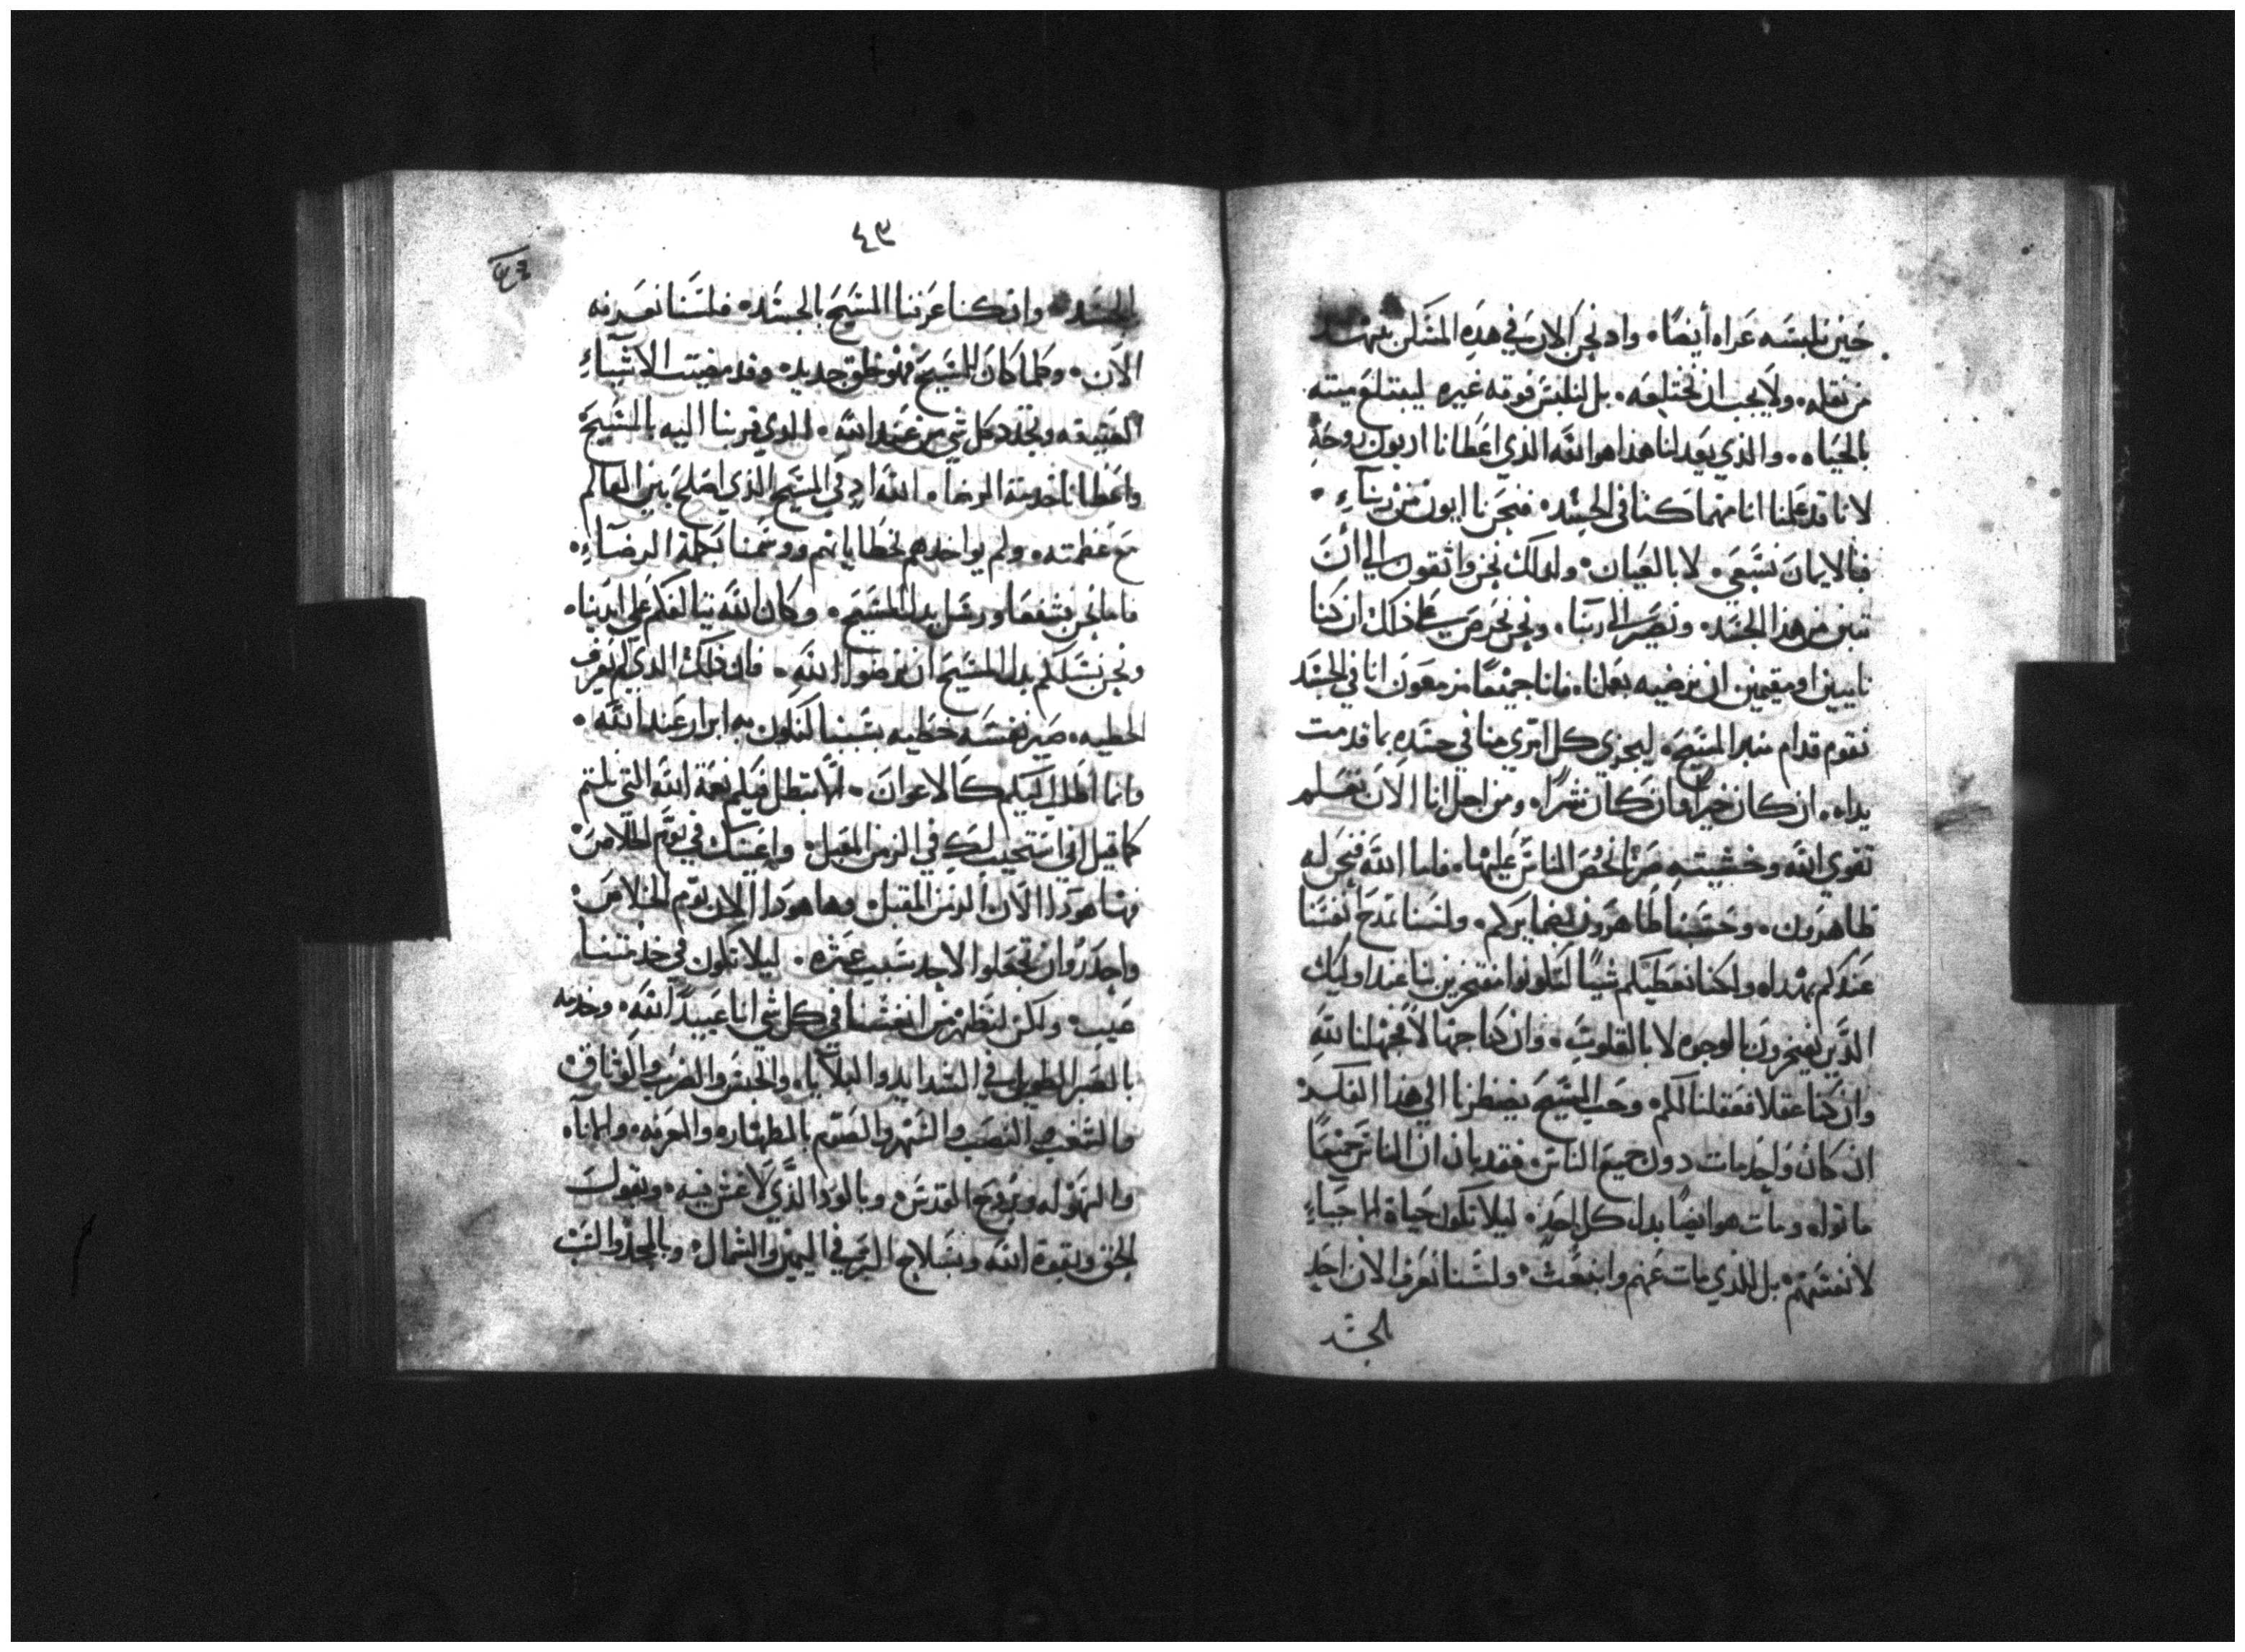 حين نلبسه عراه أيضًا٠ واد نحن الان في هذه المسكن
من نقله٠ ولا يجب ان نختلعه٠ بل لنلبس فوقه غيره ليبتلع ميته
بالحياه٠ والذي يعدلنا هذا هو الله الذي اعطانا اربون روحه
لانا قد علمنا انا مهما كنا في الجسد٠ فنحن نااييون من ربنآء٠
فبالايمان نسعي٠ لا بالعيان٠ ولدلك نحن واثقون الي أن
نبين من هذا الجسد٠ ونصير الي ربنا٠ ونحن نحرص علي ذلك ان كنا
نايبين او مقيمين ان نرضيه بعملنا٠ فانا جميعًا مزمعون انا في الجسد
نقوم قدام منبر المسيح٠ ليجزي كل امري منا في جسده بما قدمت
يداه٠ ان كان خيرًا وان كان شرًا٠ ومن اجل انا الان نعلم
تقوي الله وخشيته صرنا نحض الناس عليها٠ فاما الله فنحن له
ظاهرون٠ وحسبنا ظاهرون لضمايركم٠ ولسنا نمدح أنفسنا
عندكم بهداه ولكنا نعطيكم شيًا لتكونوا مفتخرين بنا عند اوليك
الذين يفتخرون بالوجوه لا بالقلوب٠ وان كنا جهالاً فجهلنا لله
وان كنا عقلا فعقلنا لكم٠ وحب المسيح يضطرنا الي هذا الفكر
ان كان واحد مات دون جميع الناس٠ فقد بان ان الناس جميعًا
ماتواه ومات هو ايضًا بدل كل احد٠ ليلا تكون حياة الاحياء
لانفسهم٠ بل للذي مات عنهم وانبعث٠ ولسنا نعرف الان احد
الجسد
٤٩
بالجسد٠ وان كنا عرفنا المسيح بالجسد٠ فلسنا نعرفه
الان٠ وكلما كان للمسيح فهو خلق جديد٠ وقد مضيت الاشياء
العتيقه وتجدد كل شي من عند الله٠ الذي قربنا اليه بالمسيح
واعطانا خدمة الرضا٠ الله اد في المسيح الذي اصلح بين العالم
مع عظمته٠ ولم يواخدهم بخطاياهم ووسمنا بكلمة الرضاء٠
فاما نحن شفعا ورسل بدل المسيح٠ وكان الله يتالفكم علي ايدينا٠
ونحن نسلكم بدل المسيح ان ترضوا الله٠ فان ذلك الذي لم يعرف
الخطيه٠ صير نفسه خطيه بسببنا لنكون به ابرار عند الله٠
وانما اطلب اليكم كالاعوان٠ الا تبطل فيكم نعمة الله التي لمتم
كما قيل اني استجيب لك في الزمن المقبل٠ واعينك في يوم الخلاص
فها هودا الان الزمن المقبل٠ وها هودا الان يوم الخلاص
واحدروا ان تجعلوا لاحد سبب عثره٠ ليلا تكون في خدمتنا
عيب٠ ولكن لنظهر من انفسنا في كل شي انا عبيد الله٠ وخدمه
بالصبر الطويل في الشدايد والبلايا٠ والحبس والضرب والوثاق
والشغب والنصب والسهر والصوم بالطهاره والمعرفه٠ والاناه
والسهوله وبروح القدس٠ وبالود الذي لا غش فيه٠ وبقول
الحق وبقوة الله وبسلاح البر في اليمين والشمال٠ وبالمجد والسب